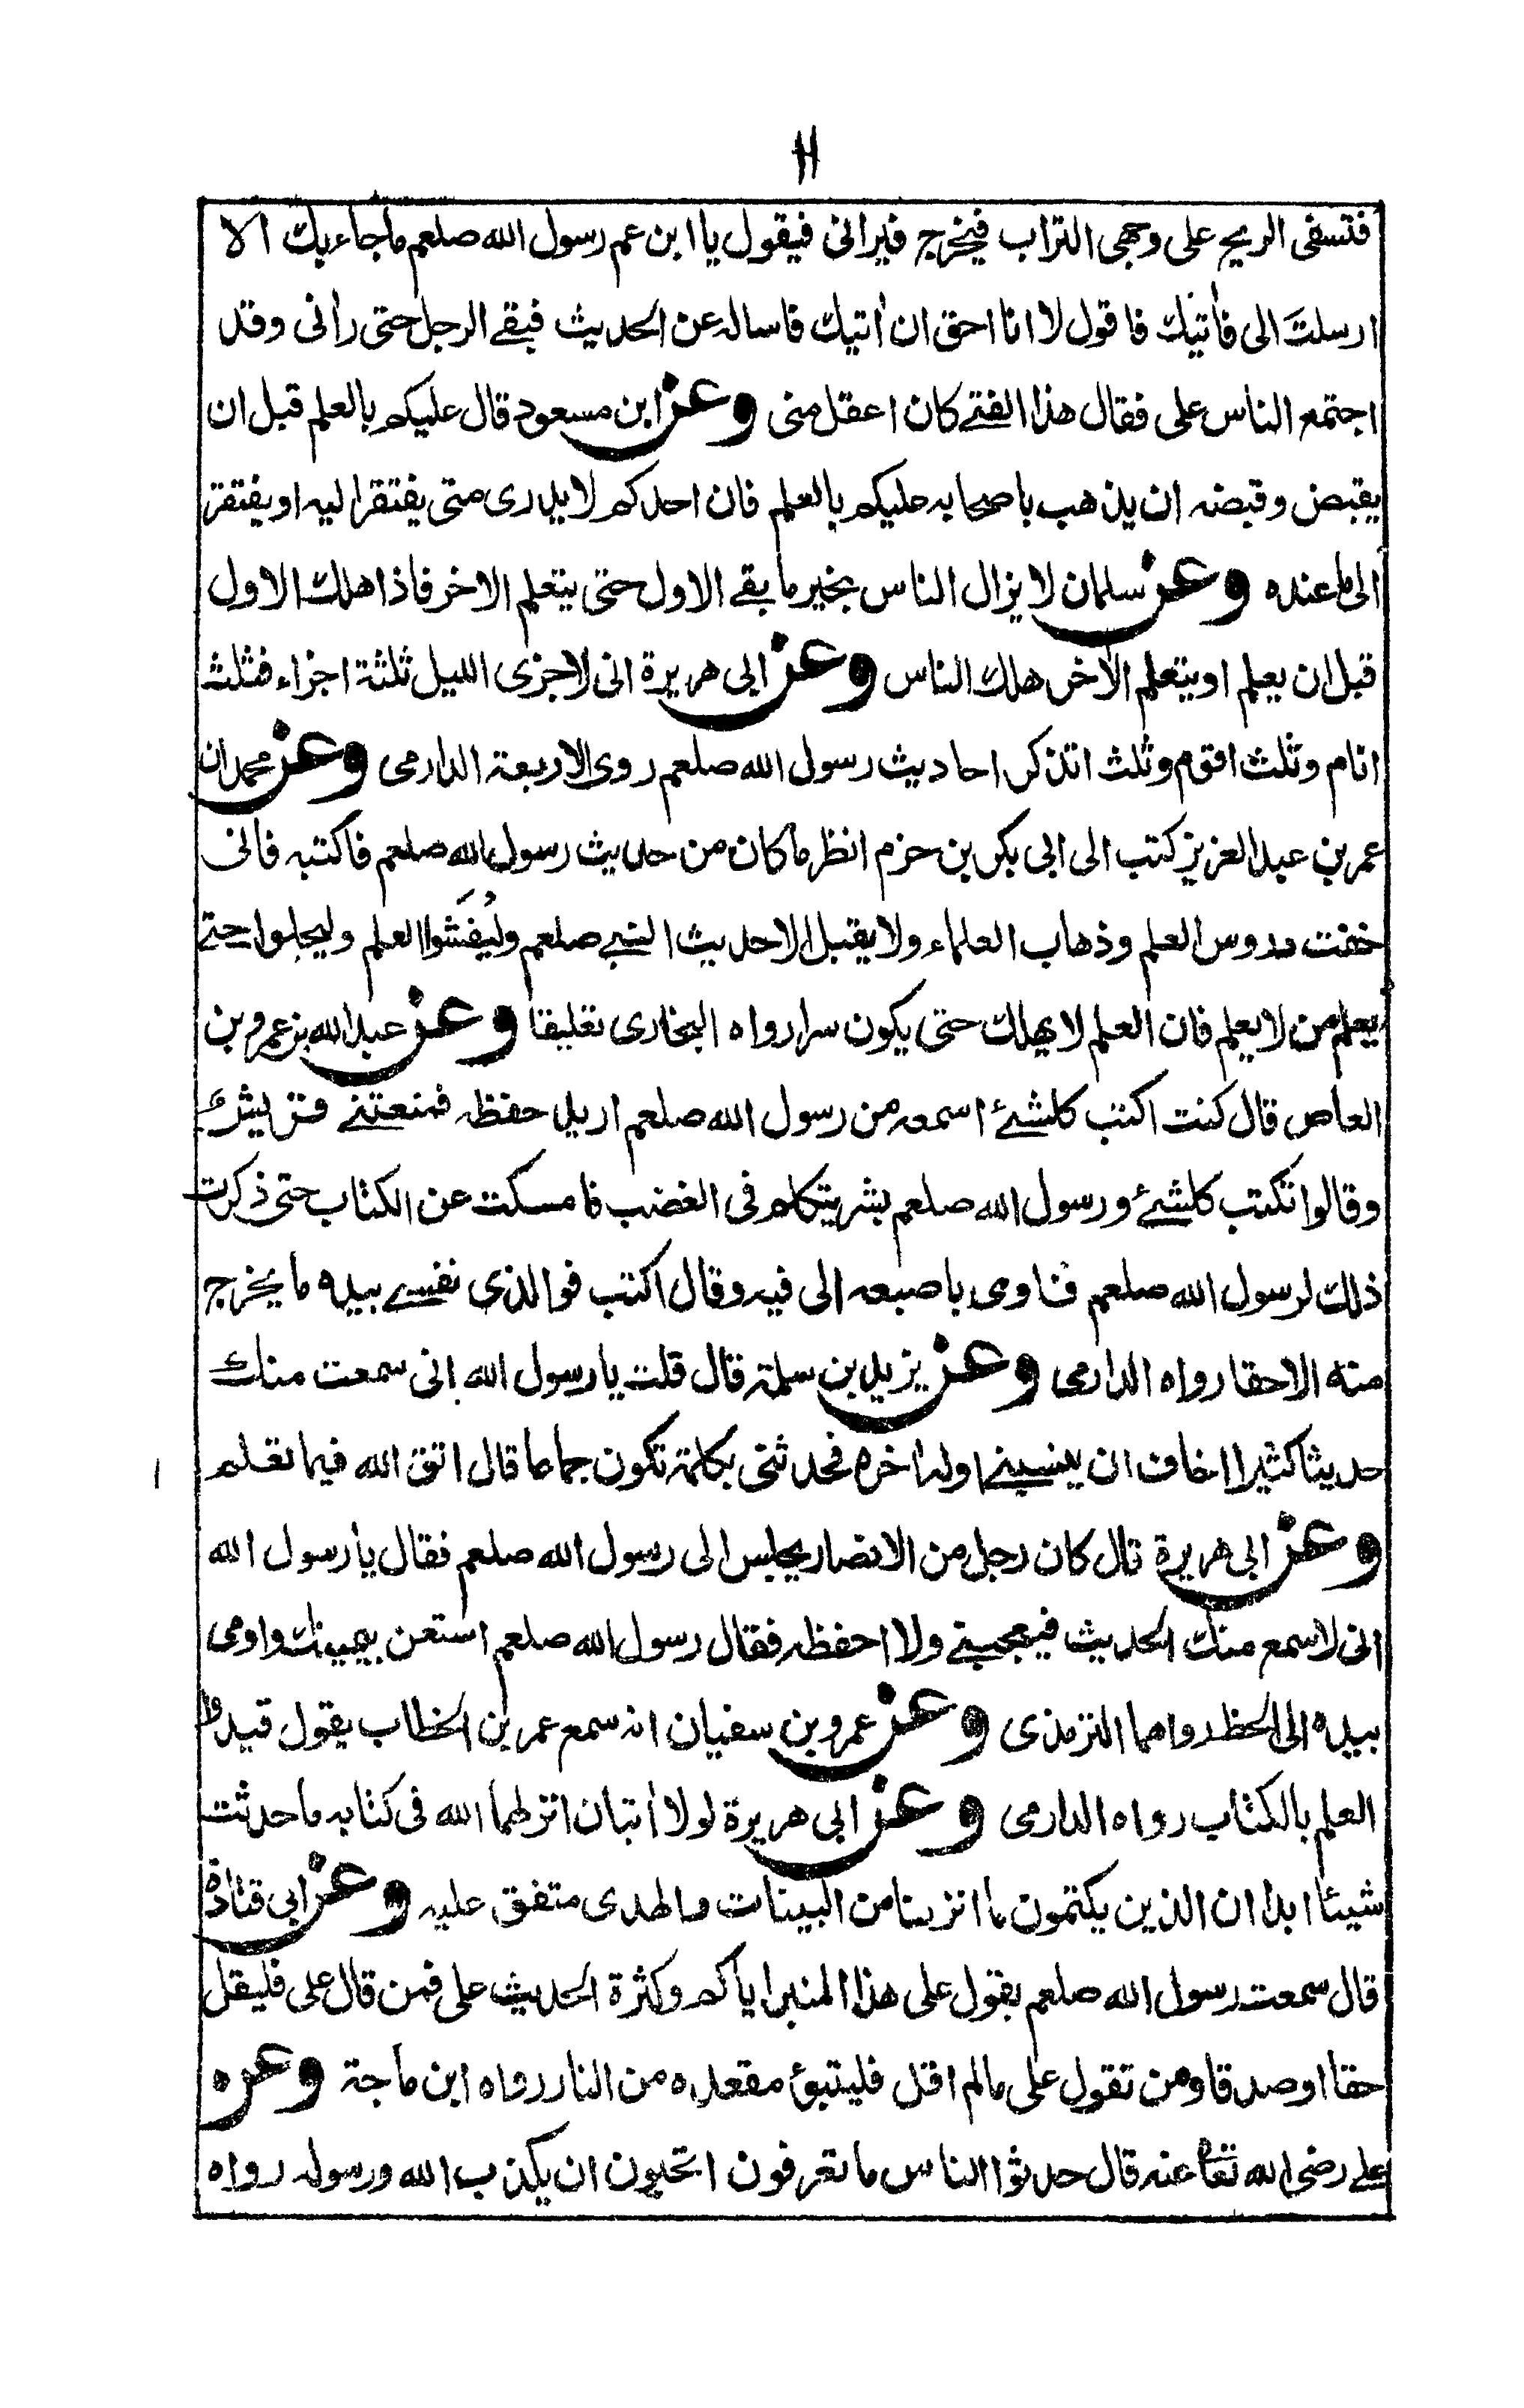 ١١
فتسفى الريح على وجهى التراب فيخرج فيرانى فيقول يا ابن عم رسول الله صلعم ما جاء بك الا
ارسلتَ الى فأتيك فاقول لا انا احق ان أتيك فاساله عن الحديث فبقے الرجل حتى رأنى وقد
اجتمع الناس على فقال هذا الفتے كان اعقل منى وعن ابن مسعود قال عليكم بالعلم قبل ان
يقبض وقبضه ان يذهب باصحابه عليكم بالعلم فان احدكم لا يدرى متى يفتقر اليه او يفتقر
الى ما عنده وعن سلمان لا يزال الناس بخير ما بقے الاول حتى يتعلم الاخر فاذا هلك الاول
قبل ان يعلم او يتعلم الأخر هلك الناس وعن ابى هريرة انى لاجزى الليل ثلثة اجزاء فثلث
انام وثلث اقوم وثلث اتذكر احاديث رسول الله صلعم روى الاربعة الدارمى وعن محمد ان
عمر بن عبد العزيز كتب الى ابى بكر بن حزم انظر ما كان من حديث رسول الله صلعم فاكتبه فانى
خفت دروس العلم وذهاب العلماء ولا يقبل الا حديث النبے صلعم وليُفشَوا العلم وليجلسوا حتے
يعلم من لا يعلم فان العلم لا يهلك حتى يكون سرا رواه البخارى تعليقا وعن عبد الله بن عمرو بن
العاص قال كنت اكتب كلشئ اسمعه من رسول الله صلعم اريد حفظه فمنعتنے قريش
وقالوا تكتب كلشئ ورسول الله صلعم بشر يتكلم فى الغضب فامسكت عن الكتاب حتى ذكرت
ذلك لرسول الله صلعم فاومى باصبعه الى فيه وقال اكتب فوالذى نفسے بيده ما يخرج
منه الا حقا رواه الدارمى وعن يزيد بن سلمة قال قلت يا رسول الله انى سمعت منك
حديثا كثيرا اخاف ان ينسينے اوله اخره فحدثنى بكلمة تكون جماعا قال اتق الله فيما تعلم
وعن ابى هريرة قال كان رجل من الانصار يجلس الى رسول الله صلعم فقال يا رسول الله
انى لاسمع منك الحديث فيعجبنے ولا احفظه فقال رسول الله صلعم استعن بيمينك واومى
بيده الى الخط رواهما الترمذى وعن عمرو بن سفيان انه سمع عمر بن الخطاب يقول قيدوا
العلم بالكتاب رواه الدارمى وعن ابى هريرة لولا أيتان انزلهما الله فى كتابه ما حدثت
شيئا ابدا ان الذين يكتمون ما انزلنا من البينات والهدى متفق عليه وعن ابى قتادة
قال سمعت رسول الله صلعم يقول على هذا المنبر اياكم وكثرة الحديث على فمن قال على فليقل
حقا او صدقا ومن تقول على مالم اقل فليتبوئ مقعده من النار رواه ابن ماجة وعن
علے رضى الله تعا عنه قال حدثوا الناس ما تعرفون اتحبون ان يكذب الله ورسوله رواه